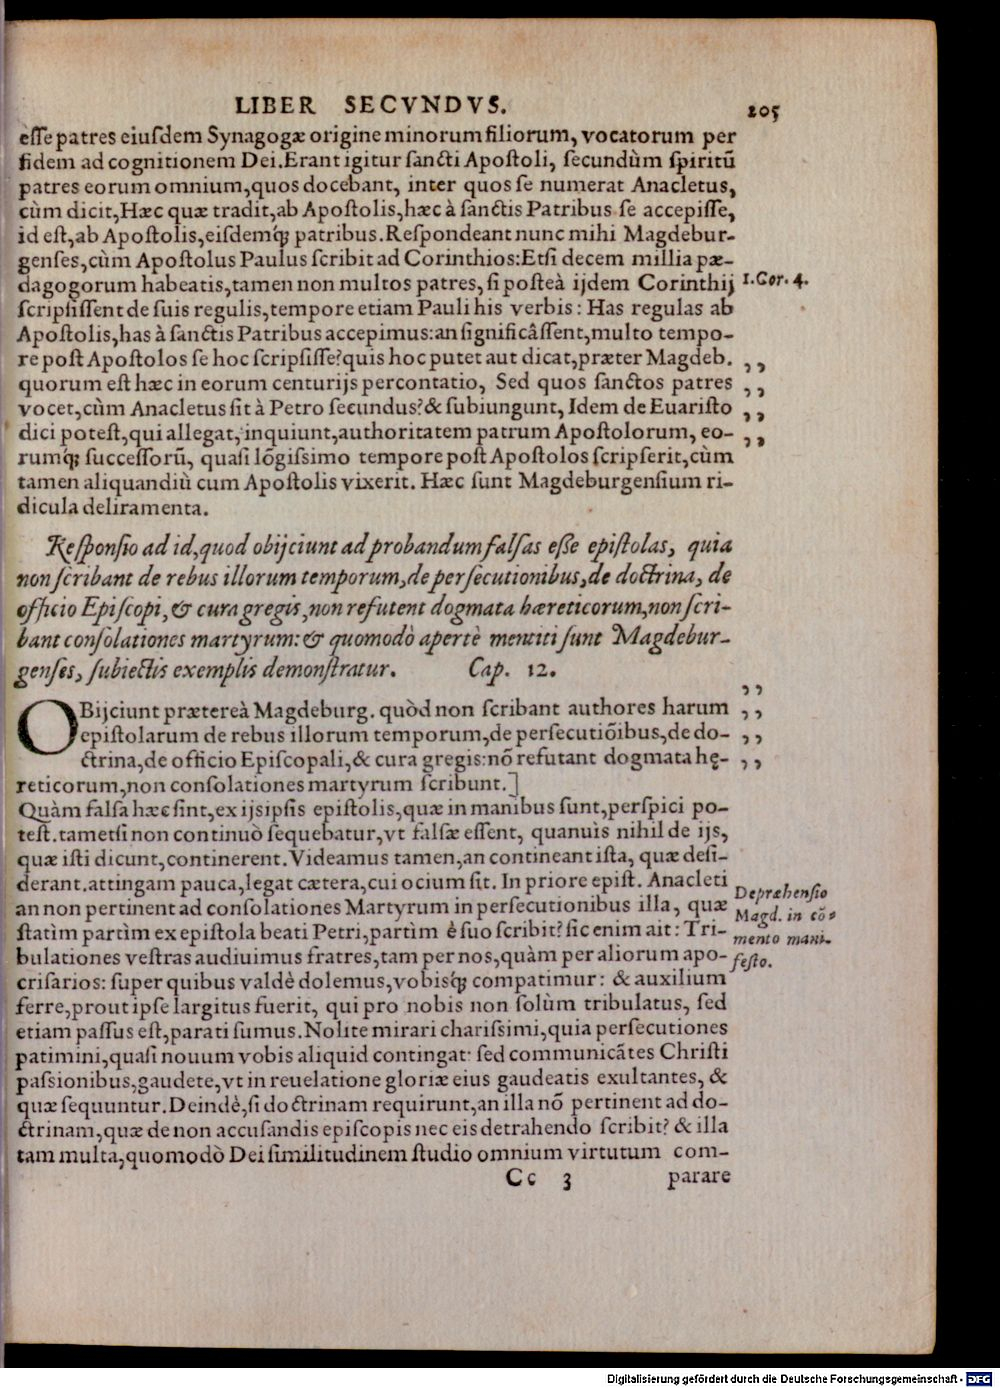 LIBER SECVNDVS. 205
esse patres eiusdem Synagogæ origine minorum filiorum, vocatorum per
fidem ad cognitionem Dei. Erant igitur sancti Apostoli, secundùm spiritū
patres eorum omnium, quos docebant, inter quos se numerat Anacletus,
cùm dicit, Hæc quæ tradit, ab Apostolis, hæc à sanctis Patribus se accepisse,
id est, ab Apostolis, eisdemq́; patribus. Respondeant nunc mihi Magdebur-
genses, cùm Apostolus Paulus scribit ad Corinthios: Etsi decem millia pæ-
dagogorum habeatis, tamen non multos patres, si posteà ijdem Corinthij
1. Cor. 4.
scripsissent de suis regulis, tempore etiam Pauli his verbis: Has regulas ab
Apostolis, has à sanctis Patribus accepimus: an significâssent, multo tempo-
re post Apostolos se hoc scripsisse? quis hoc putet aut dicat, præter Magdeb.
quorum est hæc in eorum centurijs percontatio, Sed quos sanctos patres
vocet, cùm Anacletus sit à Petro secundus? & subiungunt, Idem de Euaristo
dici potest, qui allegat, inquiunt, authoritatem patrum Apostolorum, eo-
rumq́; successorū, quasi lōgissimo tempore post Apostolos scripserit, cùm
tamen aliquandiù cum Apostolis vixerit. Hæc sunt Magdeburgensium ri-
dicula deliramenta.
Responsio ad id, quod obijciunt ad probandum falsas esse epistolas, quia
non scribant de rebus illorum temporum, de persecutionibus, de doctrina, de
officio Episcopi, & cura gregis, non refutent dogmata hæreticorum, non scri-
bant consolationes martyrum: & quomodò apertè mentiti sunt Magdebur-
genses, subiectis exemplis demonstratur. Cap. 12.
OBijciunt prætereà Magdeburg. quòd non scribant authores harum
epistolarum de rebus illorum temporum, de persecutiōibus, de do-
ctrina, de officio Episcopali, & cura gregis: nō refutant dogmata hę-
reticorum, non consolationes martyrum scribunt.]
Quàm falsa hæc sint, ex ijsipsis epistolis, quæ in manibus sunt, perspici po-
test. tametsi non continuò sequebatur, vt falsæ essent, quanuis nihil de ijs,
quæ isti dicunt, continerent. Videamus tamen, an contineant ista, quæ desi-
derant. attingam pauca, legat cætera, cui ocium sit. In priore epist. Anacleti
an non pertinent ad consolationes Martyrum in persecutionibus illa, quæ
statìm partìm ex epistola beati Petri, partìm è suo scribit? sic enim ait: Tri-
bulationes vestras audiuimus fratres, tam per nos, quàm per aliorum apo-
Depræhensio
Magd. in cō-
mento mani-
festo.
crisarios: super quibus valdè dolemus, vobisq́; compatimur: & auxilium
ferre, prout ipse largitus fuerit, qui pro nobis non solùm tribulatus, sed
etiam passus est, parati sumus. Nolite mirari charissimi, quia persecutiones
patimini, quasi nouum vobis aliquid contingat: sed communicātes Christi
passionibus, gaudete, vt in reuelatione gloriæ eius gaudeatis exultantes, &
quæ sequuntur. Deindè, si doctrinam requirunt, an illa nō pertinent ad do-
ctrinam, quæ de non accusandis episcopis nec eis detrahendo scribit? & illa
tam multa, quomodò Dei similitudinem studio omnium virtutum com-
Cc 3 parare
Digitalisierung gefördert durch die Deutsche Forschungsgemeinschaft - DFG